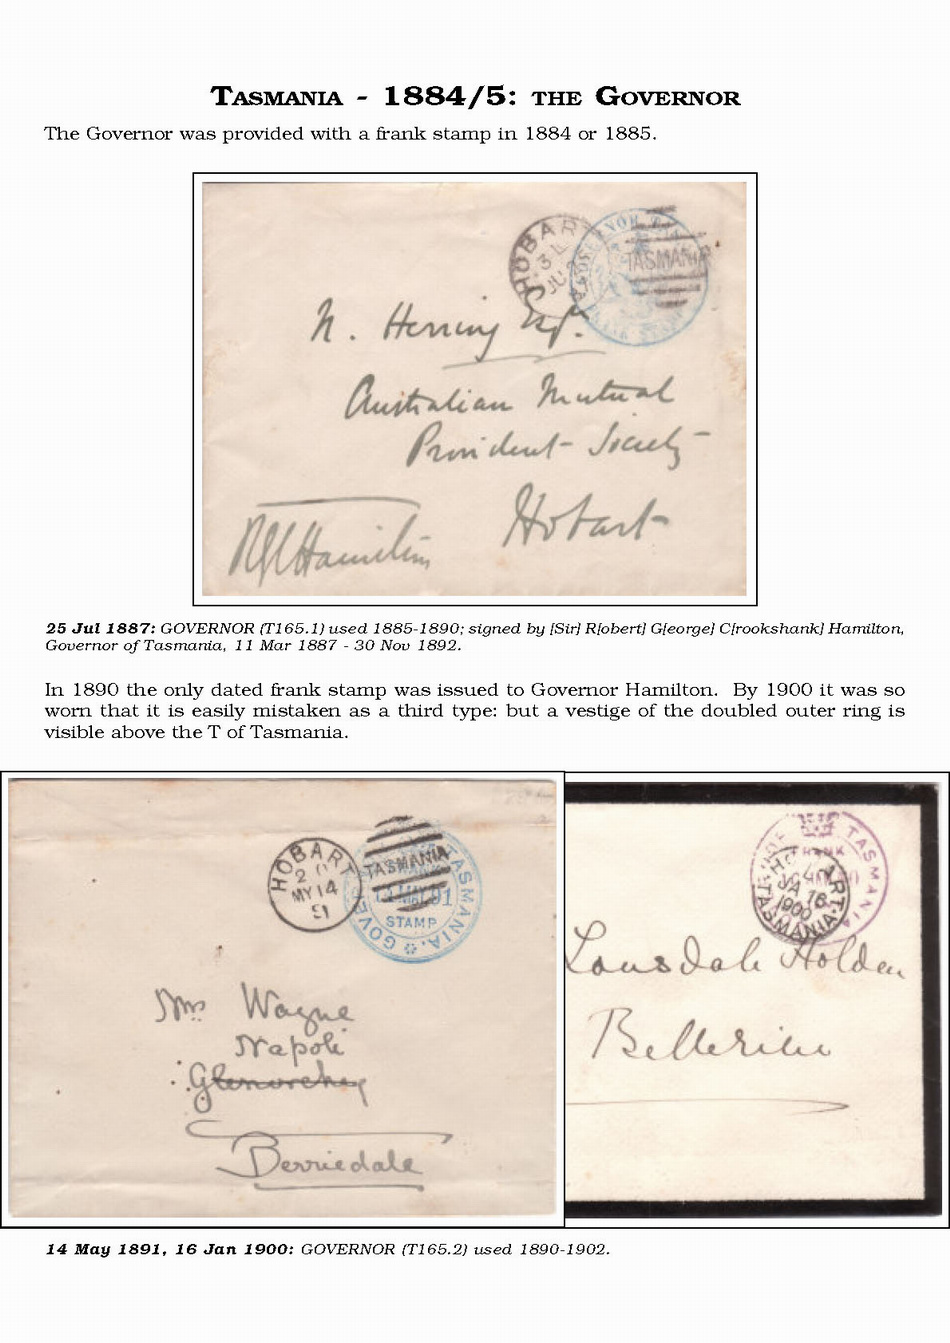 TASMANIA - 1884/5: THE GOVERNOR
The Governor was provided with a frank stamp in 1884 or 1885.
HOBAR
GOVERNOR TA
TASMANIA
N. Herring Esqr.
Australian Mutual
Provident Society
Hobart
RGCHamilton
25 Jul 1887: GOVERNOR (T165.1) used 1885-1890; signed by [Sir] R[obert] G[eorge] C[rookshank] Hamilton,
Governor of Tasmania, 11 Mar 1887 - 30 Nov 1892.
In 1890 the only dated frank stamp was issued to Governor Hamilton. By 1900 it was so
worn that it is easily mistaken as a third type: but a vestige of the doubled outer ring is
visible above the T of Tasmania.
HOBART
MY 14
91
TASMANIA
14 MAY 91
STAMP
TASMANIA.
Mrs Wayne
Napoli
Glenorchy
Berriedale
TASMANIA
JA 16
1900
TASMANIA
Lonsdale Holden
Bellerive
14 May 1891, 16 Jan 1900: GOVERNOR (T165.2) used 1890-1902.